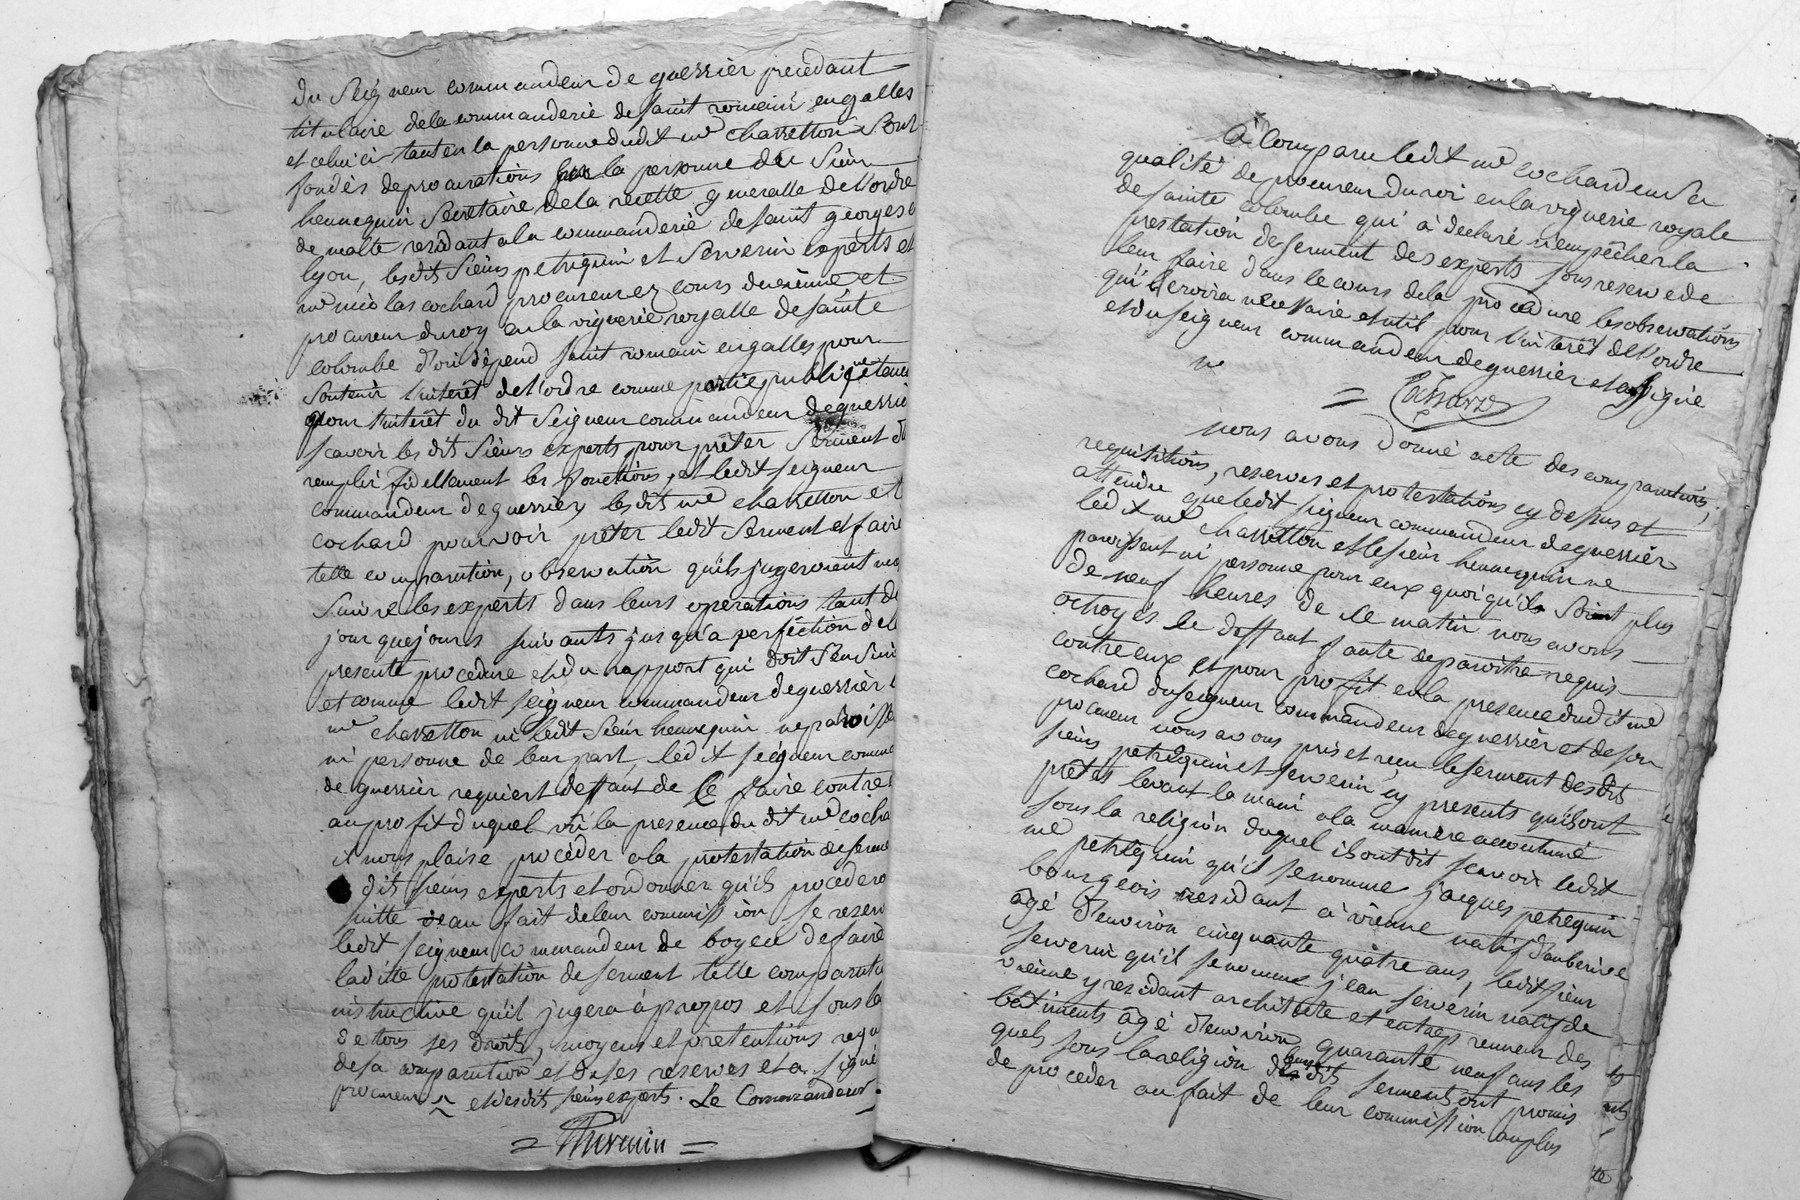 du Seigneur commandeur de guerrier precedant
titulaire dela commanderie de saint romain engalles
et celui ci tant en la personne dudit me chassetton
fondés de procurations la personne du Sieur
hennequin Secretaire de la recette generalle de l'ordre
de malte residant ala commanderie de saint georges
lyon, lesdit Sieurs petrequin et Serverin experts et
me nicolas cochard procureur ez cours de vienne et
procureur du roy en la viguerie royalle de sainte
colombe d'ou dépend saint romain engalles pour
soutenir l'interêt de l'ordre comme partie publique
pour l'interêt du dit Seigneur commandeur de guerrie
scavoir lesdit Sieurs experts pour prêter Serment d
remplir fidellement les fonctions, et ledit seigneur
commandeur de guerrier, lesdits me chassetton et
cochard pour voir prêter ledit Serment et faire
telle comparution, observation qu'ils jugeroient
Suivre les experts dans leurs operations tant de
jour que jours suivants jusqu'a perfection de l
presente procedure et du rapport qui doit S'ensuiv
et comme ledit seigneur commandeur de guerrier
me chassetton ni ledit Sieur hennequin ne paroisse
ni personne de leur part, ledit seigneur comma
de guerrier requiert deffaut de ce faire contre
au profit duquel vû la presence du dit me cocha
il nous plaise procéder ala protestation de serme
dits sieurs experts et ordonner qu'ils procedero
suitte au fait de leur commission se reserv
ledit seigneur commandeur de faire
laditte protestation de serment telle comparutio
instructive qu'il jugera à propos et sous la
de tous ses droits, moyens et prétentions requ
de sa comparution et de ses reserves et a signé
procureur et desdits sieurs experts. Le Commandeur
= Thermin =
à Comparu ledit me cochard en sa
qualité de procureur du roi en la viguerie royale
de sainte colombe qui à declaré n'empêcher la
prestation de serment des experts sous reserve de
leur faire dans le cours de la procedure les observations
qu'il croira necessaire et util pour l'interêt de l'ordre
et du seigneur commandeur de guerrier et a signé
nous avons donné acte des comparutions,
requisitions, reserves et protestations cy dessus et
attendu que ledit seigneur commandeur de guerrier
ledit me chassetton et le sieur hennequin ne
paroissent ni personne pour eux quoi qu'il Soint plus
de neuf heures de ce matin nous avons
octroyés le deffaut faute de paroitre requis
contre eux et pour profit en la presence dudit me
cochard du seigneur commandeur de guerrier et de son
procureur nous avons pris et recu le serment desdits
sieurs petrequin et serverin cy presents qu'ils ont
prêtés levant la main ala maniere accoutumé
sous la religion duquel ils ont dit scavoir ledit
me petrequin qu'il se nomme jacques petrequin
bourgeois residant à vienne natif d'auberive
âgé d'environ cinquante quâtre ans, ledit sieur
serverin qu'il se nomme jean serverin natif de
vienne y residant architecte et entrepreneur des
bâtiments âgé d'environ quarante neuf ans les
quels sous la religion de leurs dits serments ont promis
de proceder au fait de leur commission au plus